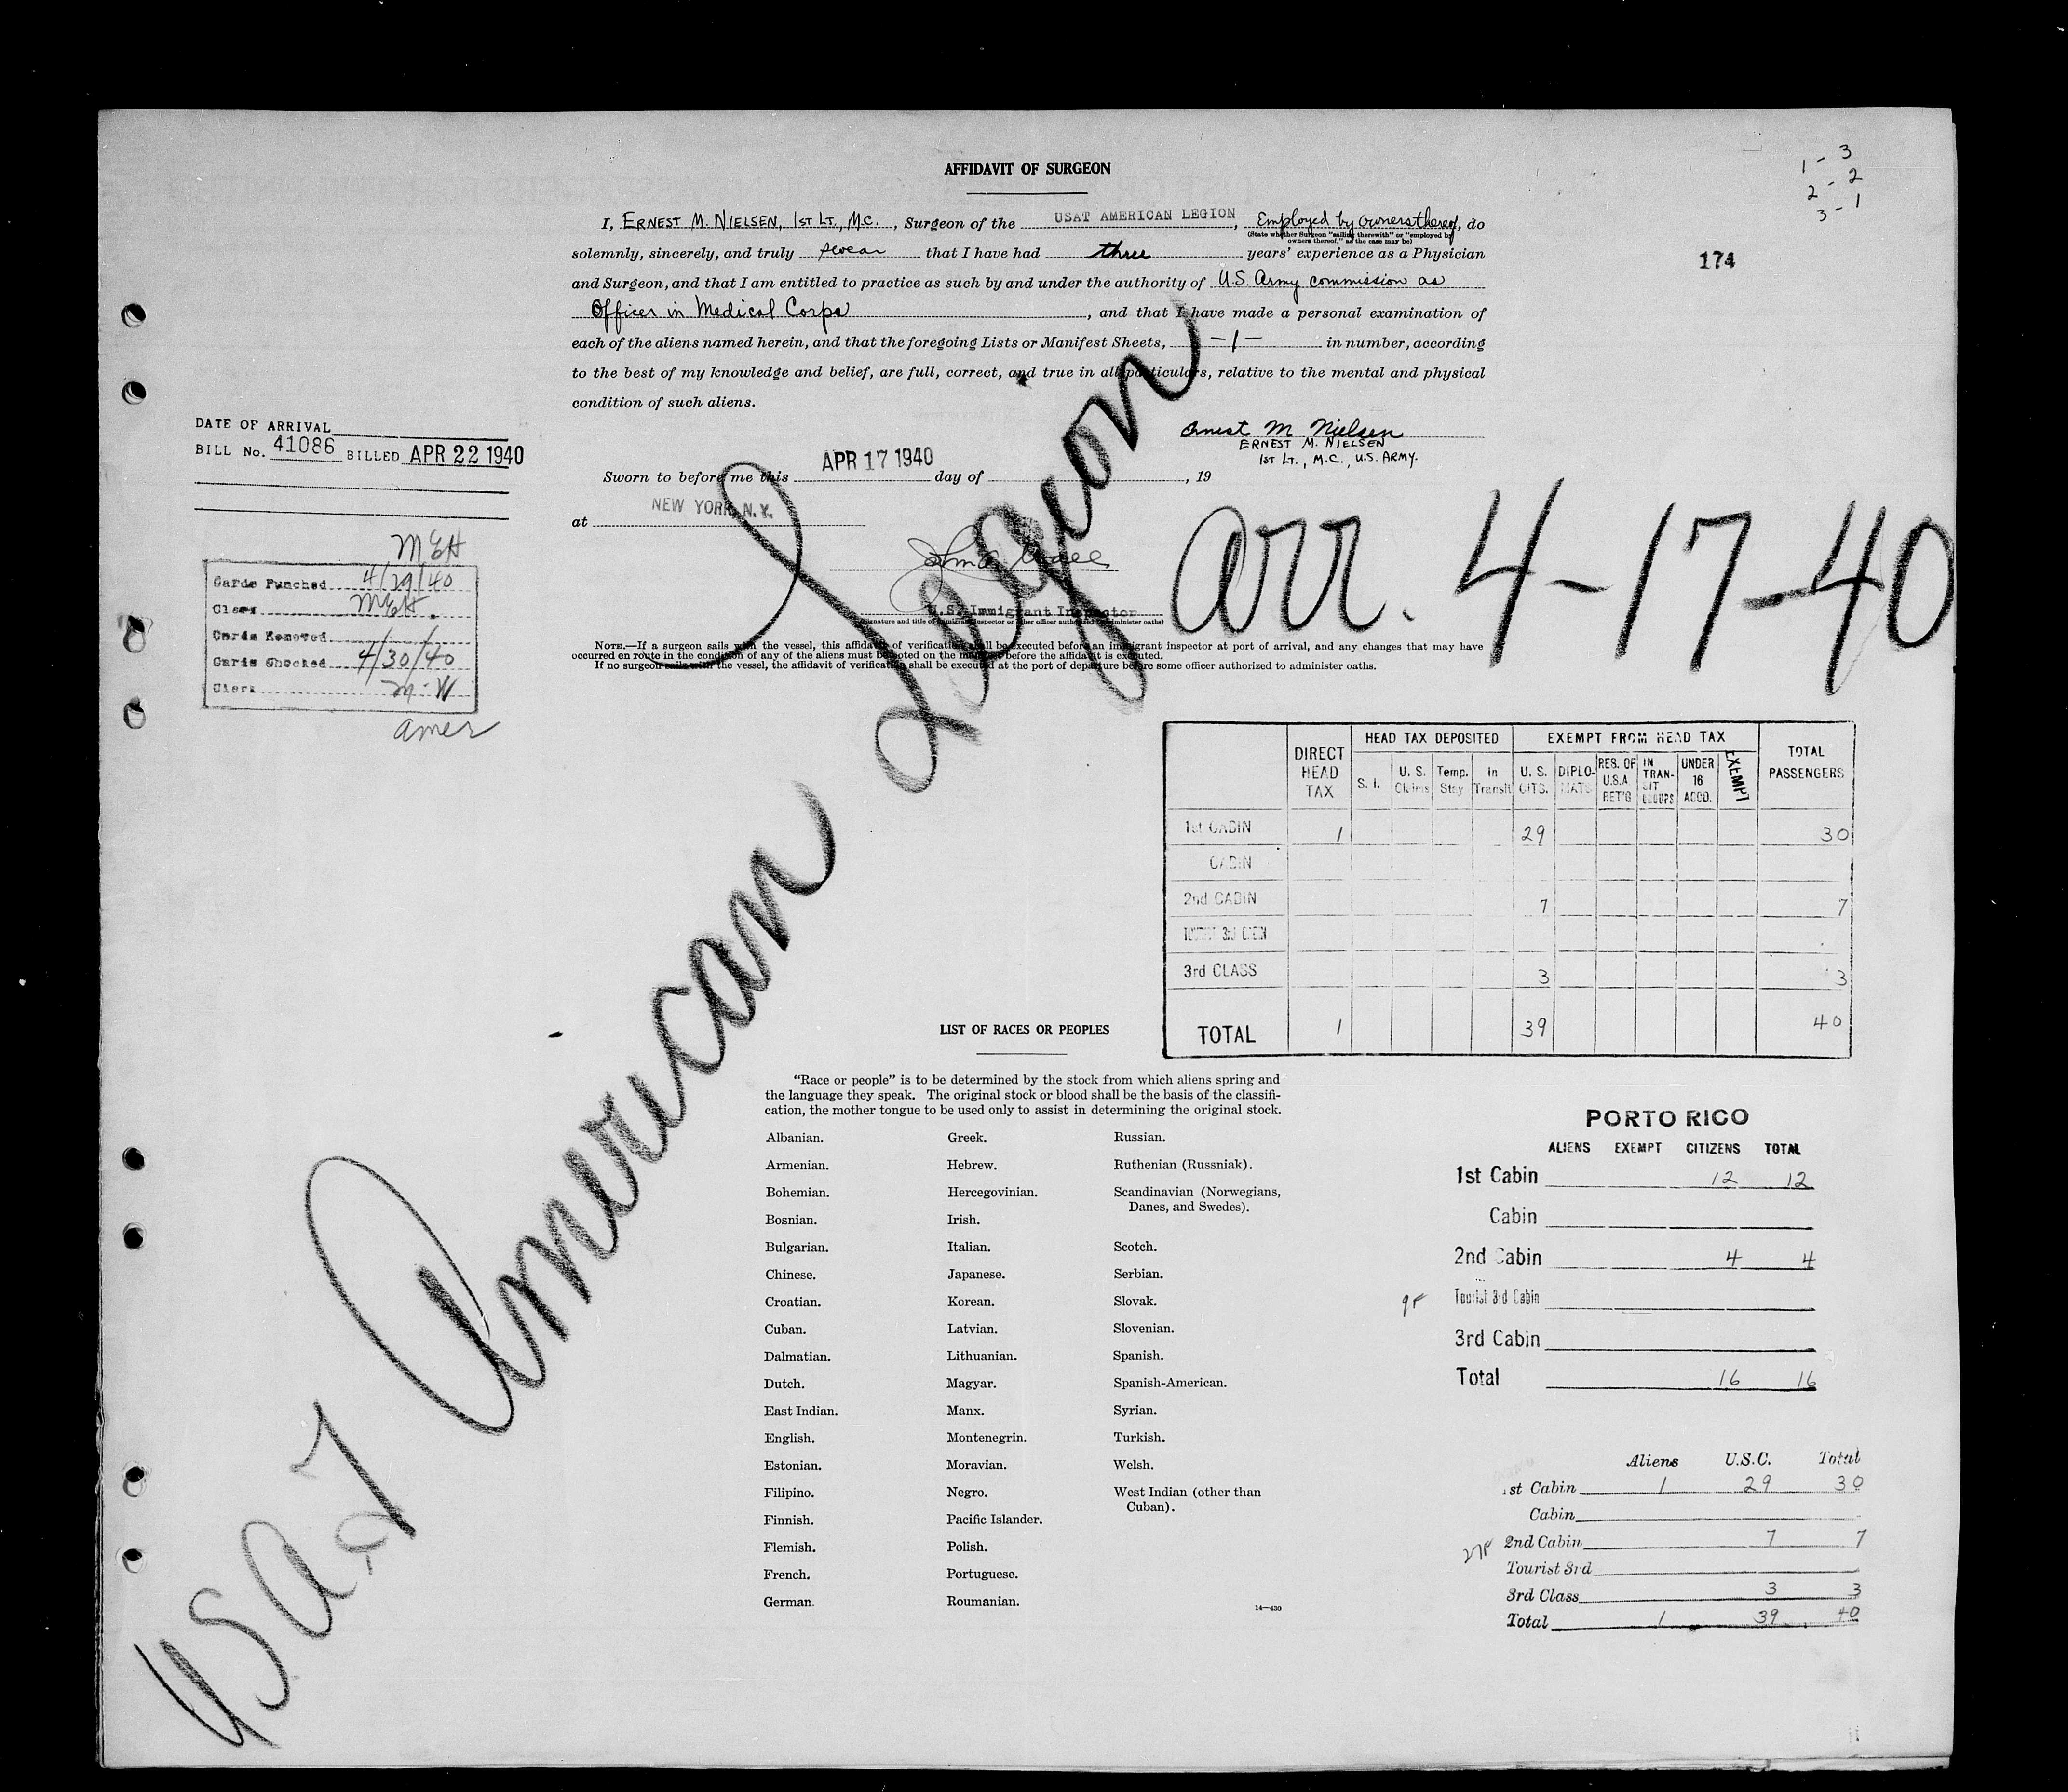 AFFIDAVIT OF SURGEON
1 - 3
2 - 2
3 - 1
174
I, ERNEST M. NIELSEN, 1ST LT., M.C. , Surgeon of the USAT AMERICAN LEGION , Employed by owners thereof, do
(State whether Surgeon "sailing therewith" or "employed by
owners thereof," as the case may be)
solemnly, sincerely, and truly swear that I have had three years' experience as a Physician
and Surgeon, and that I am entitled to practice as such by and under the authority of U.S. Army commission as
Officer in Medical Corps , and that I have made a personal examination of
each of the aliens named herein, and that the foregoing Lists or Manifest Sheets, -1- in number, according
to the best of my knowledge and belief, are full, correct, and true in all particulars, relative to the mental and physical
condition of such aliens.
Ernest M Nielsen
ERNEST M. NIELSEN
1ST LT., M.C., U.S. ARMY.
Sworn to before me this APR 17 1940 day of , 19
at NEW YORK, N.Y.
U.S. Immigrant Inspector
(Signature and title of immigrant inspector or other officer authorized to administer oaths)
NOTE.—If a surgeon sails with the vessel, this affidavit of verification shall be executed before an immigrant inspector at port of arrival, and any changes that may have
occurred en route in the condition of any of the aliens must be noted on the manifest before the affidavit is executed.
If no surgeon sails with the vessel, the affidavit of verification shall be executed at the port of departure before some officer authorized to administer oaths.
DATE OF ARRIVAL
BILL No. 41086 BILLED APR 22 1940
MEH
Cards Punched 4/29/40
Clerk MEH.
Cards Removed
Cards Checked 4/30/40
Clerk M-W
amer
USAT American Legion
arr. 4-17-40
DIRECT HEAD TAX
HEAD TAX DEPOSITED
EXEMPT FROM HEAD TAX
TOTAL PASSENGERS
S. I. U. S. Claims Temp. Stay In Transit U. S. CITS. DIPLO-MATS RES. OF U.S.A RET'G IN TRAN-SIT GROUPS UNDER 16 ACCD. EXEMPT
1st CABIN 1 29 30
CABIN
2nd CABIN 7 7
TOURIST 3rd CABIN
3rd CLASS 3 3
TOTAL 1 39 40
LIST OF RACES OR PEOPLES
"Race or people" is to be determined by the stock from which aliens spring and
the language they speak. The original stock or blood shall be the basis of the classifi-
cation, the mother tongue to be used only to assist in determining the original stock.
Albanian.
Armenian.
Bohemian.
Bosnian.
Bulgarian.
Chinese.
Croatian.
Cuban.
Dalmatian.
Dutch.
East Indian.
English.
Estonian.
Filipino.
Finnish.
Flemish.
French.
German.
Greek.
Hebrew.
Hercegovinian.
Irish.
Italian.
Japanese.
Korean.
Latvian.
Lithuanian.
Magyar.
Manx.
Montenegrin.
Moravian.
Negro.
Pacific Islander.
Polish.
Portuguese.
Roumanian.
Russian.
Ruthenian (Russniak).
Scandinavian (Norwegians,
Danes, and Swedes).
Scotch.
Serbian.
Slovak.
Slovenian.
Spanish.
Spanish-American.
Syrian.
Turkish.
Welsh.
West Indian (other than
Cuban).
14—430
PORTO RICO
ALIENS EXEMPT CITIZENS TOTAL
1st Cabin 12 12
Cabin
2nd Cabin 4 4
Tourist 3rd Cabin
3rd Cabin
Total 16 16
Aliens U.S.C. Total
1st Cabin 1 29 30
Cabin
2nd Cabin 7 7
Tourist 3rd
3rd Class 3 3
Total 1 39 40